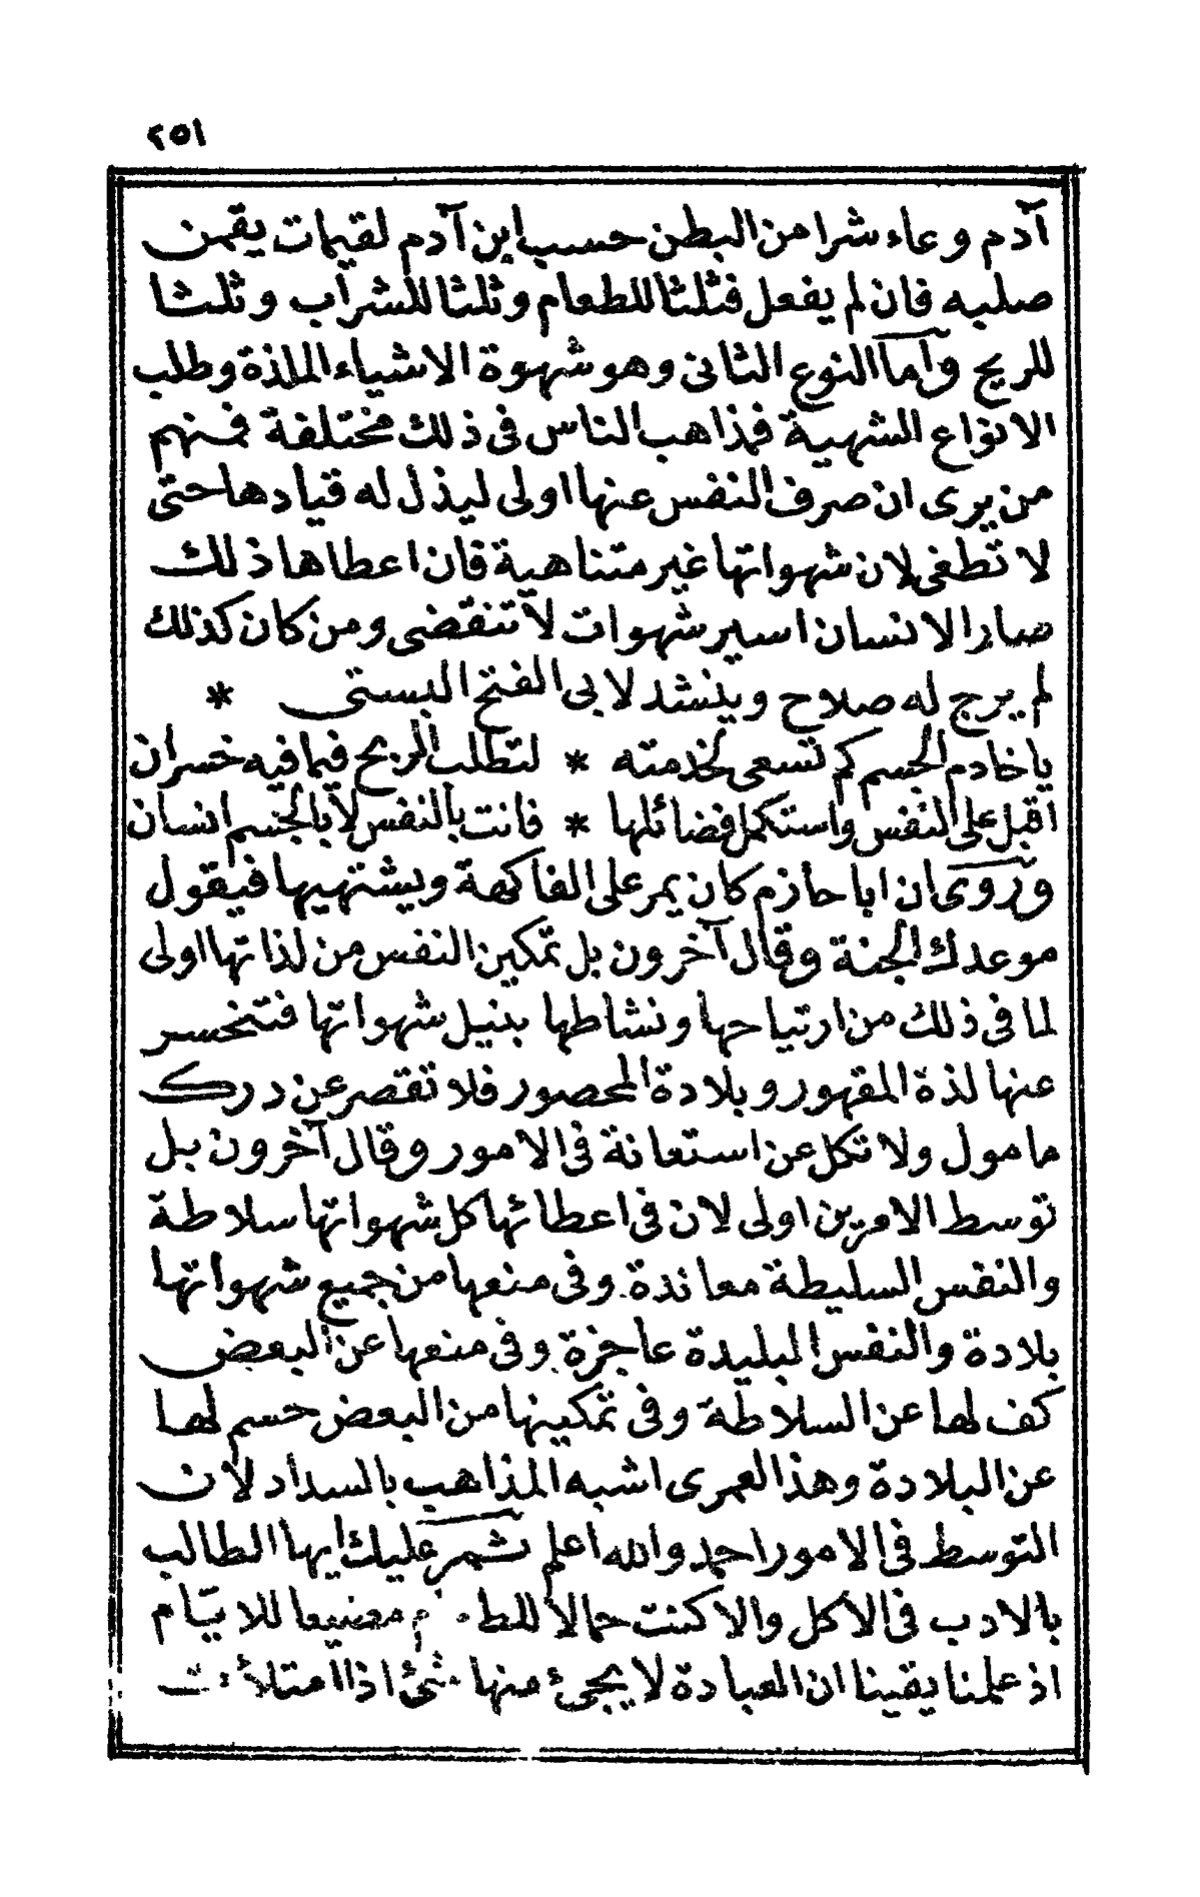 ٢٥١
آدم وعاء شرا من البطن حسب ابن آدم لقيمات يقمن
صلبه فان لم يفعل فثلثا للطعام وثلثا للشراب وثلثا
للريح وأما النوع الثانى وهو شهوة الاشياء الملذة وطلب
الانواع الشهية فمذاهب الناس فى ذلك مختلفة فمنهم
من يرى ان صرف النفس عنها اولى ليذل له قيادها حتى
لا تطغى لان شهواتها غير متناهية فان اعطاها ذلك
صار الانسان اسير شهوات لا تنقضى ومن كان كذلك
لم يرج له صلاح وينشد لابى الفتح البستى *
يا خادم الجسم كم تسعى لخدمته * لتطلب الربح فيما فيه خسران
اقبل على النفس واستكمل فضائلها * فانت بالنفس لا بالجسم انسان
وروى ان ابا حازم كان يمر على الفاكهة ويشتهيها فيقول
موعدك الجنة وقال آخرون بل تمكين النفس من لذاتها اولى
لما فى ذلك من ارتياحها ونشاطها بنيل شهواتها فتنخسر
عنها لذة المقهور وبلادة المحصور فلا تقصر عن درك
مامول ولا تكل عن استعانة فى الامور وقال آخرون بل
توسط الامرين اولى لان فى اعطائها كل شهواتها سلاطة
والنفس السليطة معاندة وفى منعها من جميع شهواتها
بلادة والنفس البليدة عاجزة وفى منعها عن البعض
كف لها عن السلاطة وفى تمكينها من البعض حسم لها
عن البلادة وهذا لعمرى اشبه المذاهب بالسداد لان
التوسط فى الامور احمد والله اعلم ثم عليك ايها الطالب
بالادب فى الاكل والا كنت حمالا للطعام مضيعا للايام
اذ علمنا يقينا ان العبادة لا يجىء منها شئ اذا امتلأ